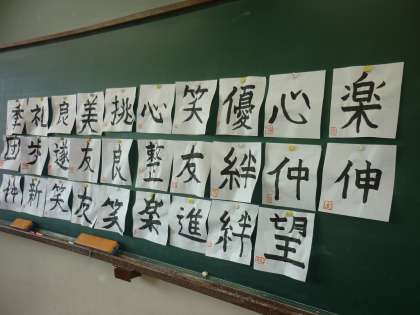 礼良美挑心笑優心楽
歩遂友良整友絆仲伸
新笑友笑楽進絆望